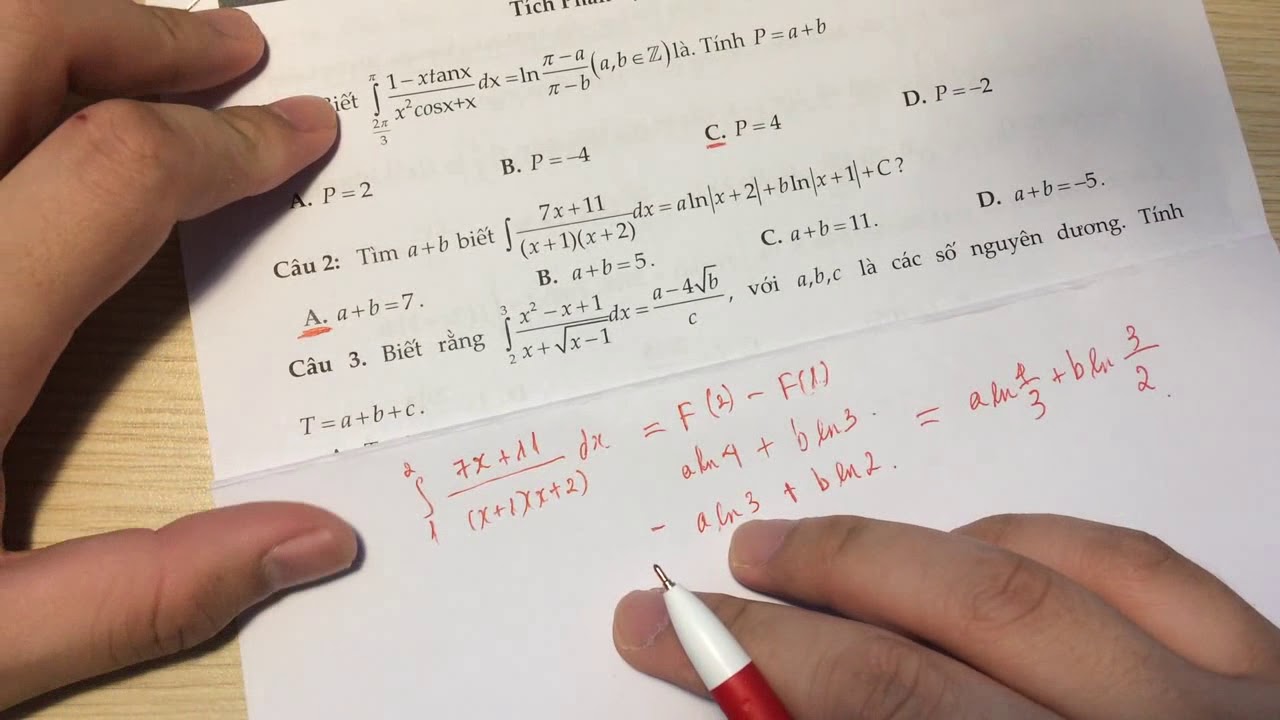 Tích Phân
Biết ∫_{2π/3}^{π} (1−xtanx)/(x²cosx+x) dx = ln (π−a)/(π−b) (a,b∈ℤ) là. Tính P=a+b
A. P=2 B. P=−4 C. P=4 D. P=−2
Câu 2: Tìm a+b biết ∫ (7x+11)/((x+1)(x+2)) dx = aln|x+2|+bln|x+1|+C?
A. a+b=7. B. a+b=5. C. a+b=11. D. a+b=−5.
Câu 3. Biết rằng ∫_2^3 (x²−x+1)/(x+√(x−1)) dx = (a−4√b)/c, với a,b,c là các số nguyên dương. Tính
T=a+b+c.
∫_1^2 (7x+11)/((x+1)(x+2)) dx = F(2) − F(1)
aln4 + bln3 = aln 4/3 + bln 3/2.
− aln3 + bln2.